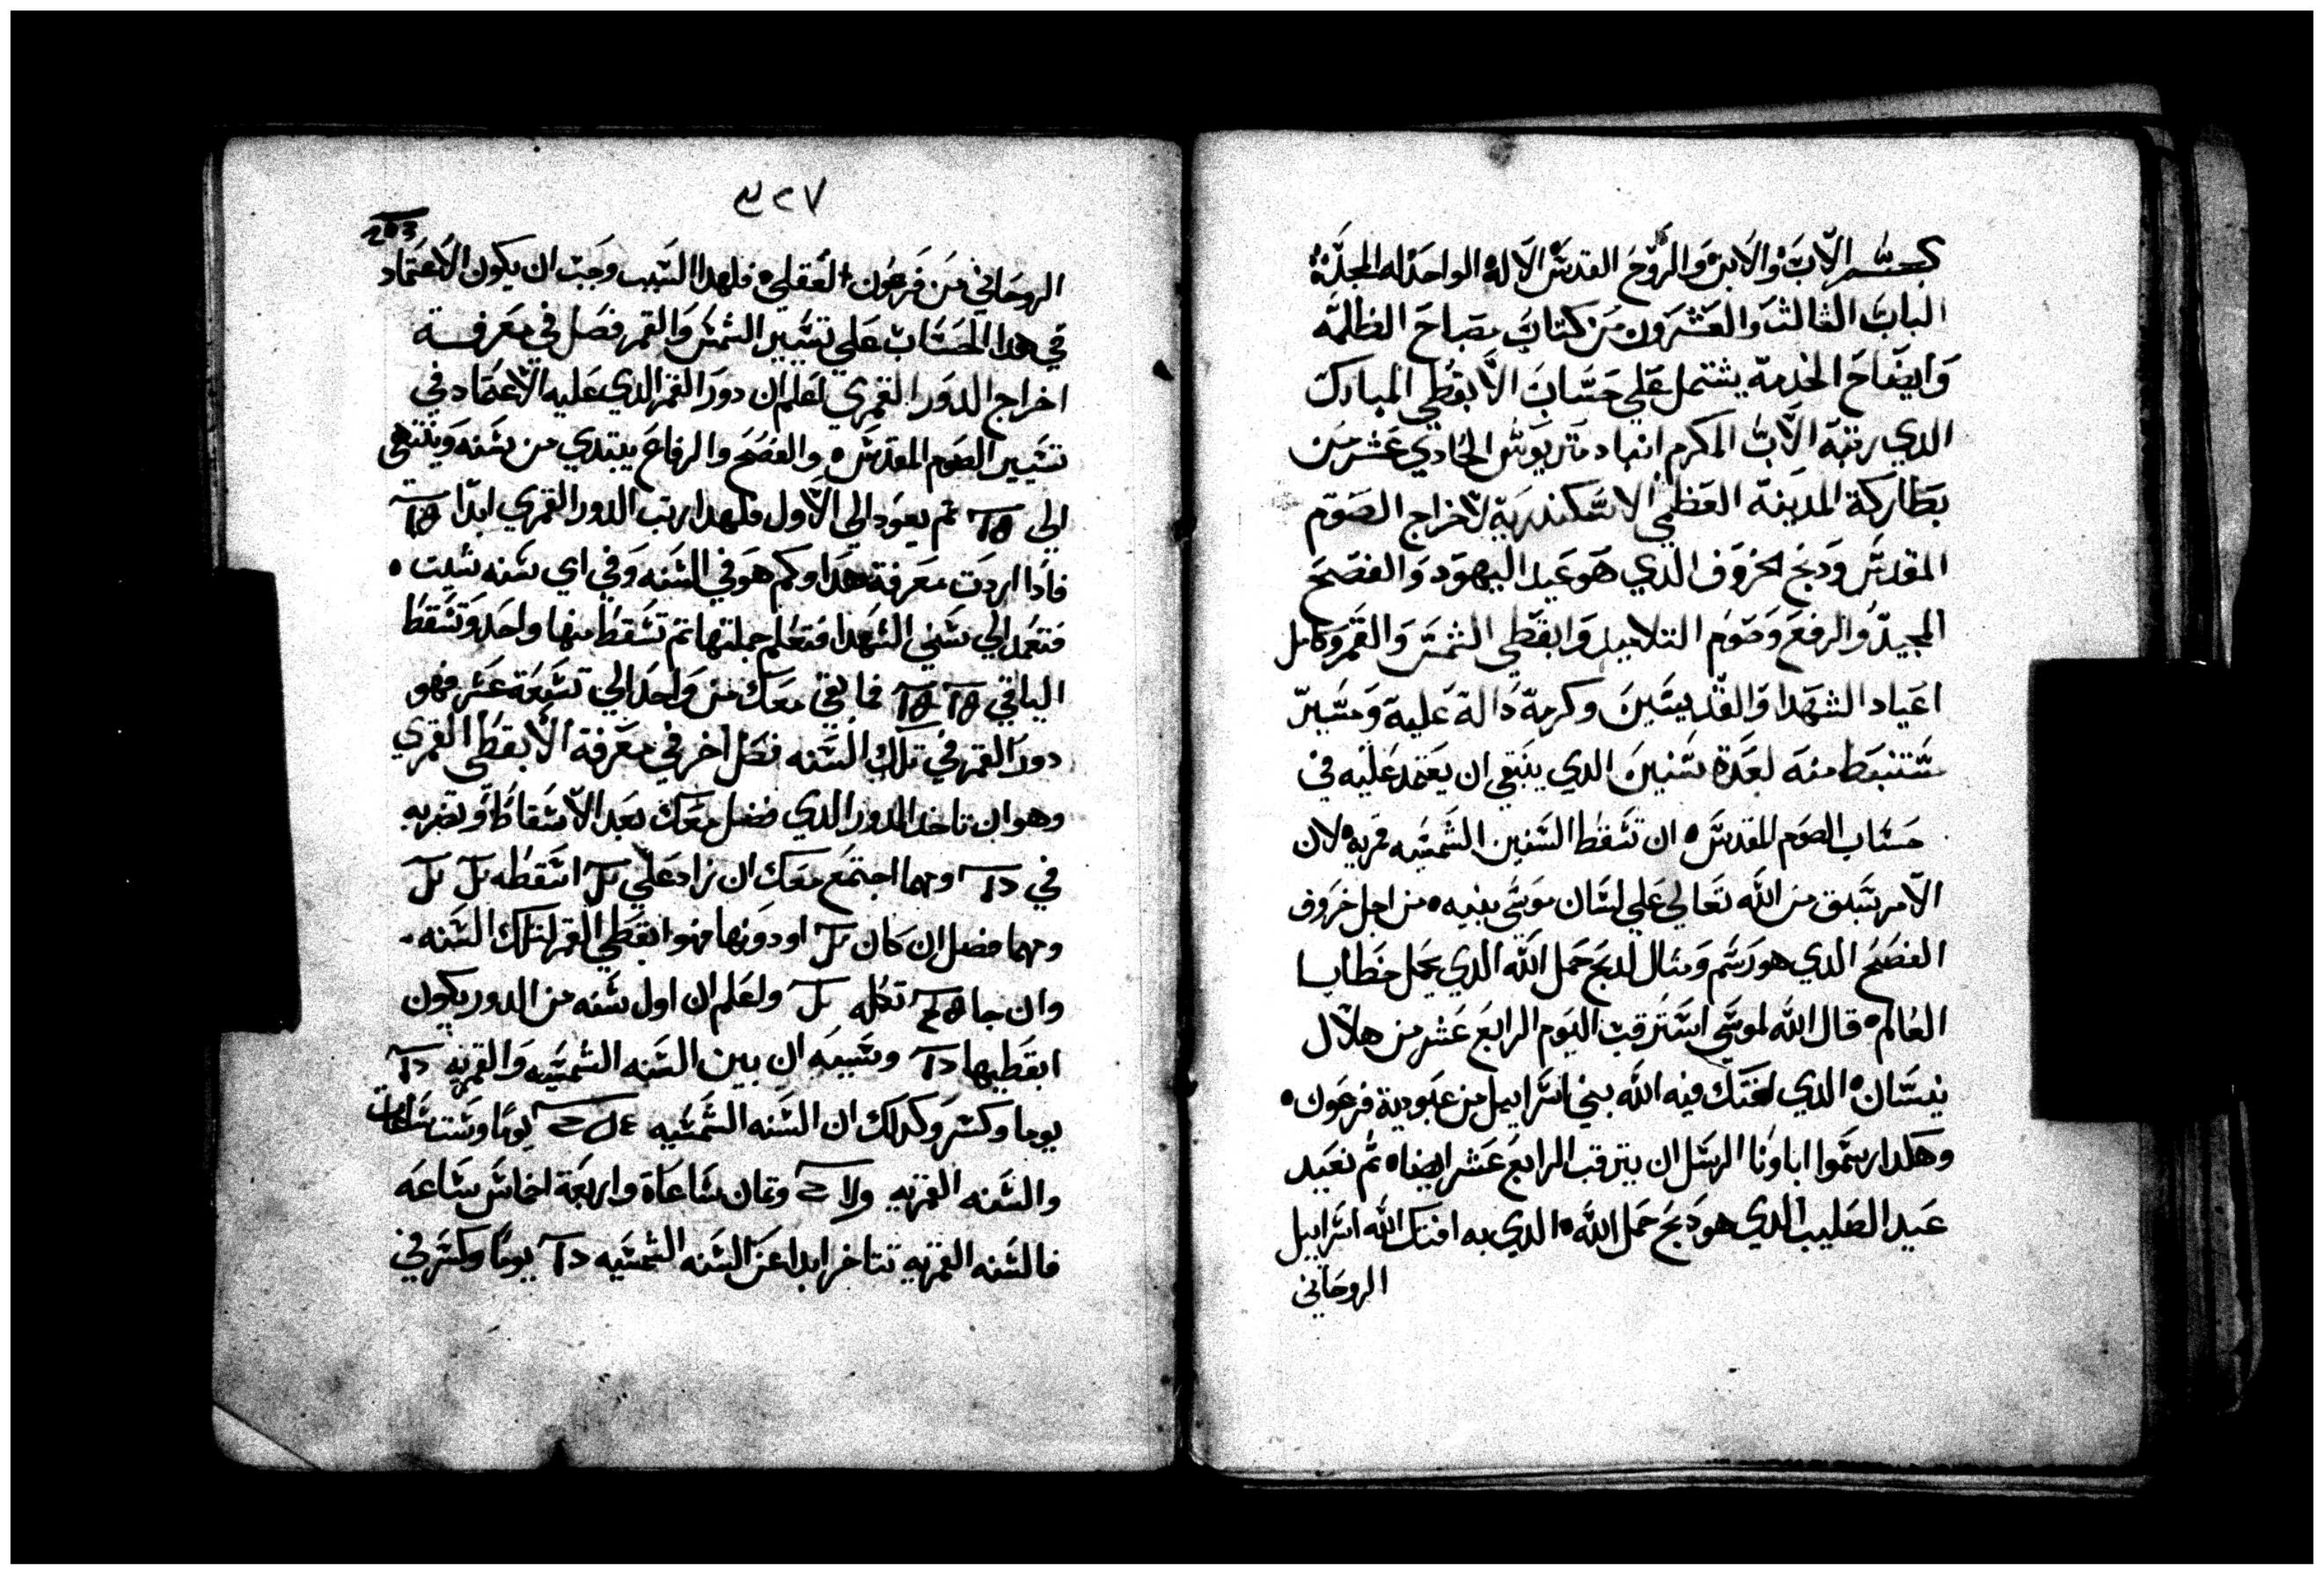 بسم الاب والابن والروح القدس الاله الواحد له المجد
الباب الثالث والعشرون من كتاب مصباح الظلمه
وايضاح الخدمة يشتمل علي حساب الابقطي المبارك
الدي رتبه الاب المكرم انبا دمتريوس الحادي عشر من
بطاركة المدينة العظمي الاسكندرية لاخراج الصوم
المقدس ودبح الخروف الدي هو عيد اليهود والفصح
المجيد والرفع وصوم التلاميد وابقطي الشمس والقمر وكامل
اعياد الشهدا والقديسين وكرمة دالة علية ومسير
ستنبط منه لعدة سنين الدي ينبغي ان يعتمد عليه في
حساب الصوم المقدس ان تسقط السنين الشمسيه قمريه لان
الامر سبق من الله تعالي علي لسان موسي نبيه من اجل خروف
الفصح الدي هو رسم ومثال لدبح حمل الله الدي يحمل خطايا
العالم قال الله لموسي استرقب اليوم الرابع عشر من هلال
نيسان الدي افتك فيه الله بني اسراييل من عبودية فرعون
وهكدا رسموا اباونا الرسل ان يترقب الرابع عشر ايضا تم نعيد
عيد الصليب الدي هو دبح حمل الله الدي به افتك الله اسراييل
الروحاني
٣٢٧
203
الروحاني من فرعون العقلي فلهدا السبب وجب ان يكون الاعتماد
في هدا الحساب علي تسيير الشمس والقمر فصل في معرفة
اخراج الدور القمري اعلم ان دور القمر الدي عليه الاعتماد في
تسيير الصوم المقدس والفصح والرفاع يبتدي من سنه وينتهي
الي تم يعود الي الاول فلهدا رتب الدور القمري ابدا
فادا اردت معرفة هدا وكم هو في السنه وفي اي سنه شيت
فتعمد الي سني الشهدا فتعلم جملتها تم تسقط منها واحد وتسقط
الباقي فما بقي معك من واحد الي تسعة عشر فهو
دور القمر في تلك السنه فصل اخر في معرفة الابقطي القمري
وهو ان تاخد الدور الدي فضل معك بعد الاسقاط وتضربه
في ومهما اجتمع معك ان زاد علي اسقطه
ومهما فضل ان كان او دونها فهو ابقطي القمر لتلك السنه
وان جا تكله واعلم ان اول سنه من الدور يكون
ابقطيها وسببه ان بين السنه الشمسيه والقمريه
يوما وكسر وكدلك ان السنه الشمسيه يوما وست ساعات
والسنه القمريه وتمان ساعاة واربعة اخماس ساعه
فالسنه القمريه تتاخر ابدا عن السنه الشمسيه يوما وكسر في